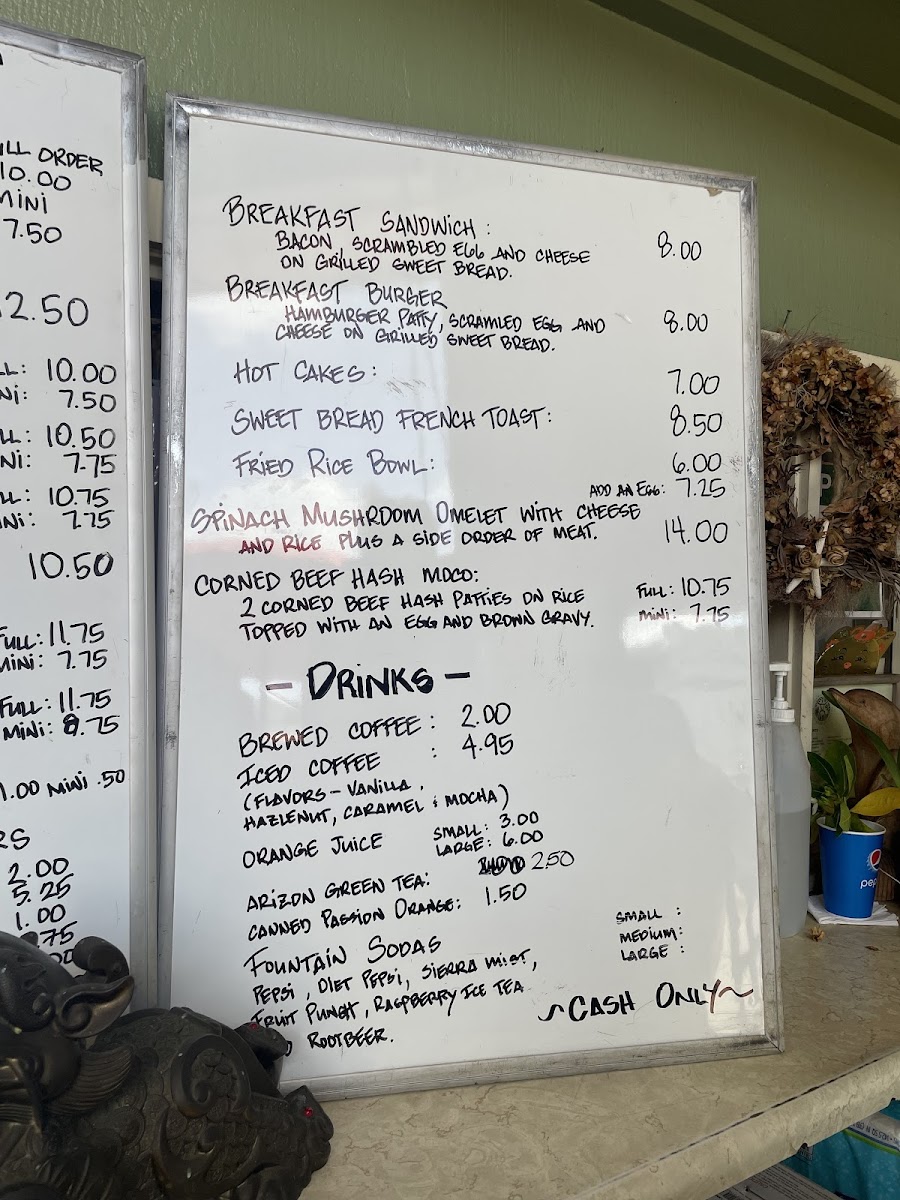 ILL ORDER
10.00
MINI
7.50
12.50
LL: 10.00
NI: 7.50
LL: 10.50
NI: 7.75
LL: 10.75
NI: 7.75
10.50
FULL: 11.75
MINI: 7.75
FULL: 11.75
MINI: 8.75
1.00 MINI .50
RS
2.00
5.25
1.00
.75
BREAKFAST SANDWICH: 8.00
BACON, SCRAMBLED EGG AND CHEESE
ON GRILLED SWEET BREAD.
BREAKFAST BURGER
HAMBURGER PATTY, SCRAMLED EGG AND 8.00
CHEESE ON GRILLED SWEET BREAD.
HOT CAKES: 7.00
SWEET BREAD FRENCH TOAST: 8.50
FRIED RICE BOWL: 6.00
ADD AN EGG: 7.25
SPINACH MUSHROOM OMELET WITH CHEESE
AND RICE PLUS A SIDE ORDER OF MEAT. 14.00
CORNED BEEF HASH MOCO:
2 CORNED BEEF HASH PATTIES ON RICE FULL: 10.75
TOPPED WITH AN EGG AND BROWN GRAVY. MINI: 7.75
- DRINKS -
BREWED COFFEE: 2.00
ICED COFFEE : 4.95
(FLAVORS - VANILLA,
HAZLENUT, CARAMEL & MOCHA)
ORANGE JUICE SMALL: 3.00
LARGE: 6.00
ARIZON GREEN TEA: 2.50
CANNED PASSION ORANGE: 1.50
FOUNTAIN SODAS
PEPSI, DIET PEPSI, SIERRA MIST,
FRUIT PUNCH, RASPBERRY ICE TEA
ROOTBEER.
SMALL :
MEDIUM:
LARGE :
~CASH ONLY~
pep